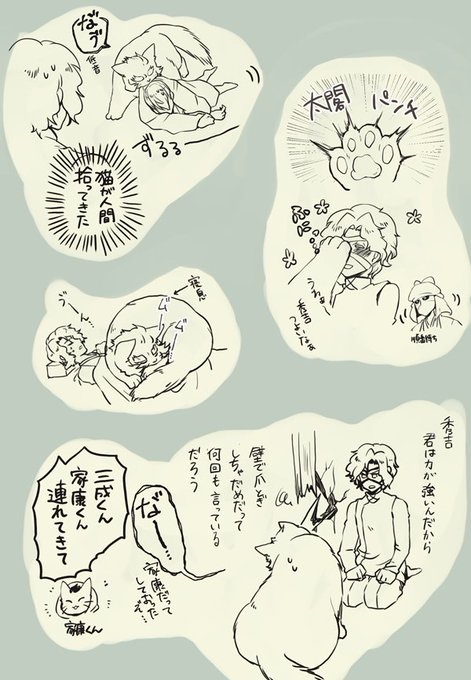 なう゛
低音
ずるる
猫が人間
拾ってきた
太閤
パンチ
ぷにぷに
うわぁ
秀吉
つよいなぁ
順番待ち
寝息
う゛ーん
秀吉
君は力が強いんだから
壁で爪とぎ
しちゃだめだって
何回も言っている
だろう
な゛ー…
家康だって
しておった
三成くん
家康くん
連れてきて
家康くん